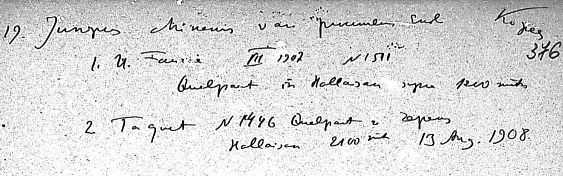 19. Junip. chinensis var procumbens Endl Korea
376
1. U. Faurie III 1907 N 1511
Quelpaert in Hallaisan supra 1200 mts
2 Taquet N 1446 Quelpaert
Hallaisan 2100 mt 13 Aug. 1908.